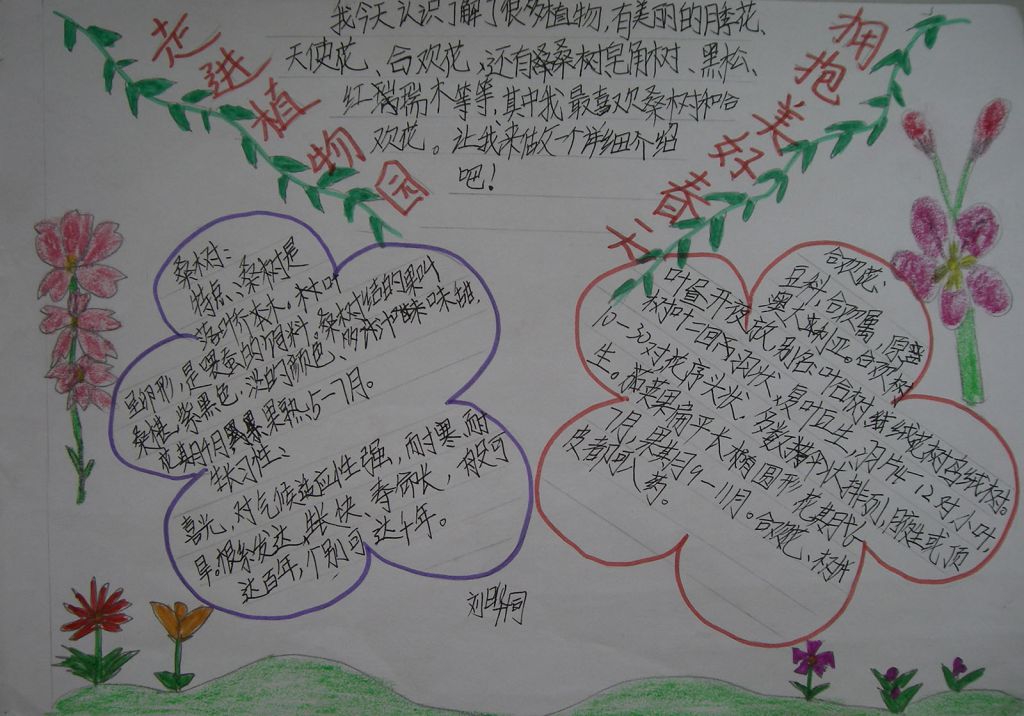 走进植物园
我今天认识了解了很多植物,有美丽的月季花、
天使花、合欢花、还有桑树皂角树、黑松、
红瑞木等等,其中我最喜欢桑树和合
欢花。让我来做一个详细介绍
吧!
拥抱美好春天
桑树:
特点、桑树是
落叶乔木。树叶
呈卵形,是喂蚕的饲料。桑树结的果叫
桑椹,紫黑色、淡的颜色、多汁味甜,
花期4月果熟,5—7月。
生长习性、
喜光,对气候适应性强,耐寒,耐
旱。根系发达,生长快、寿命长,一般可
达百年,个别可达千年。
合欢花、
豆科,合欢属,原产
澳大利亚。合欢树
叶昼开夜放,别名、叶合树绒线花树马绒树。
羽状,复叶互生,羽片4—12对,小叶,
10—30对
生。荚果扁平大椭圆形,花期长
7月,果期9—11月。合欢花、树
皮都可入药。
刘明同